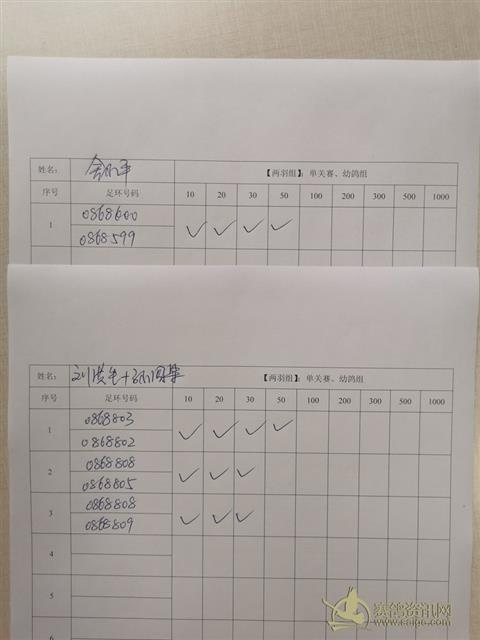 姓名: 【两羽组】: 单关赛、幼鸽组
序号 足环号码 10 20 30 50 100 200 300 500 1000
1 0868600
0868599 ✓ ✓ ✓ ✓
姓名: 【两羽组】: 单关赛、幼鸽组
序号 足环号码 10 20 30 50 100 200 300 500 1000
1 0868803
0868802 ✓ ✓ ✓ ✓
2 0868808
0868805 ✓ ✓ ✓
3 0868808
0868809 ✓ ✓ ✓
4
5
6
赛鸽资讯网
www.saige.com